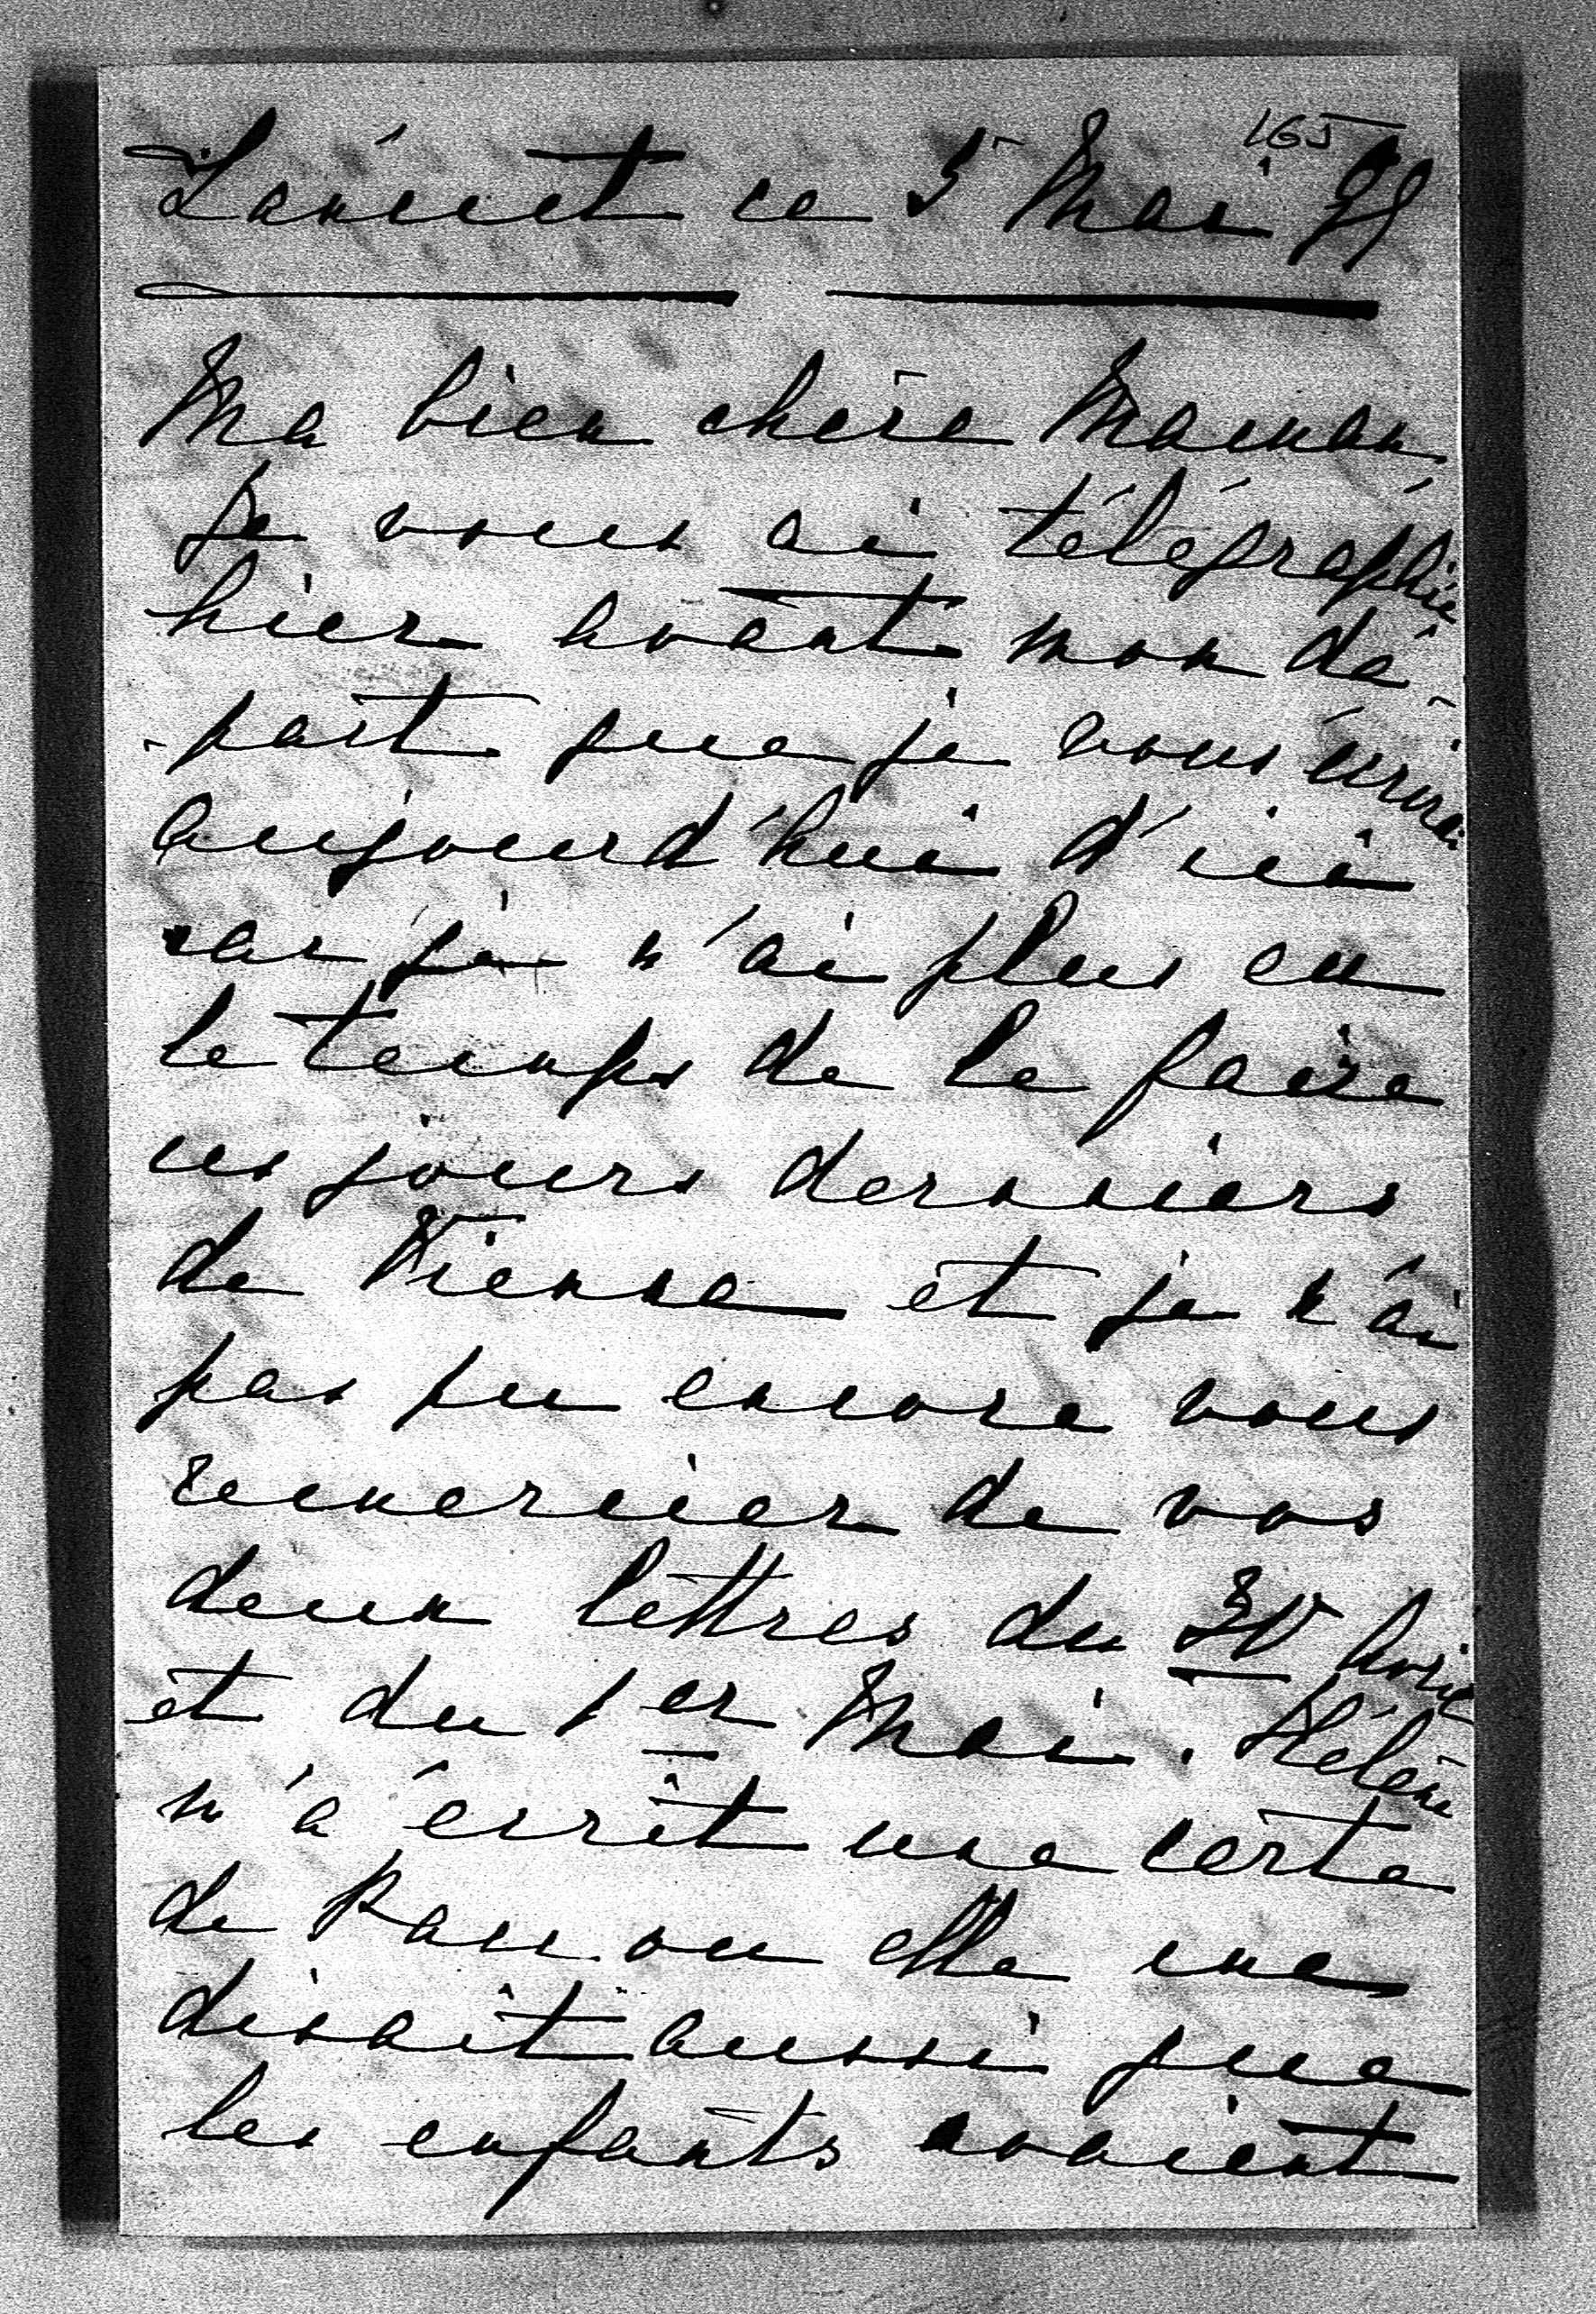 165
Láncút ce 5 Mai 99
Ma bien chère Maman,
Je vous ai télégraphié
hier avant mon dé-
-part que je vous écrirai
aujourd'hui d'ici
car je n'ai plus eu
le temps de le faire
ces jours derniers
de Vienne et je n'ai
pas pu encore vous
remercier de vos
deux lettres du 30 Avril
et du 1er Mai. Hélène
m'a écrit une carte
de Pau où elle me
disait aussi que
les enfants avaient